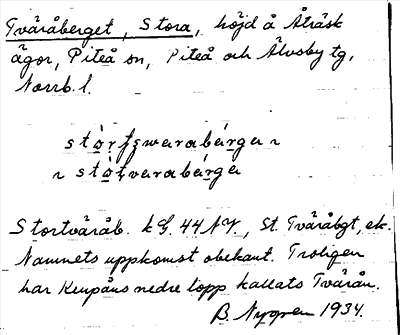 Tväråberget, Stora, höjd å Åträsk
ägor, Piteå sn, Piteå och Älvsby tg,
Norrb. l.
Stortväråb. kG. 44 NV, St. Tväråbgt, ek.
Namnets uppkomst obekant. Troligen
har Keupåns nedre lopp kallats Tvärån.
B. Nygren 1934.